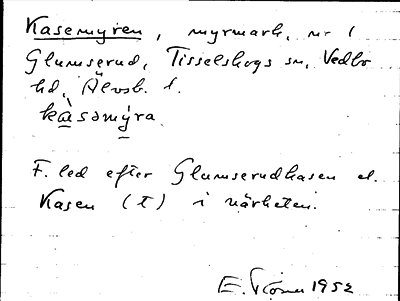 Kasemyren, myrmark, nr 1
Glumserud, Tisselskogs sn, Vedbo
hd, Älvsb. l.
kàsəmy̱ra.
F. led efter Glumserudkasen el.
Kasen (t) i närheten.
E. 1952